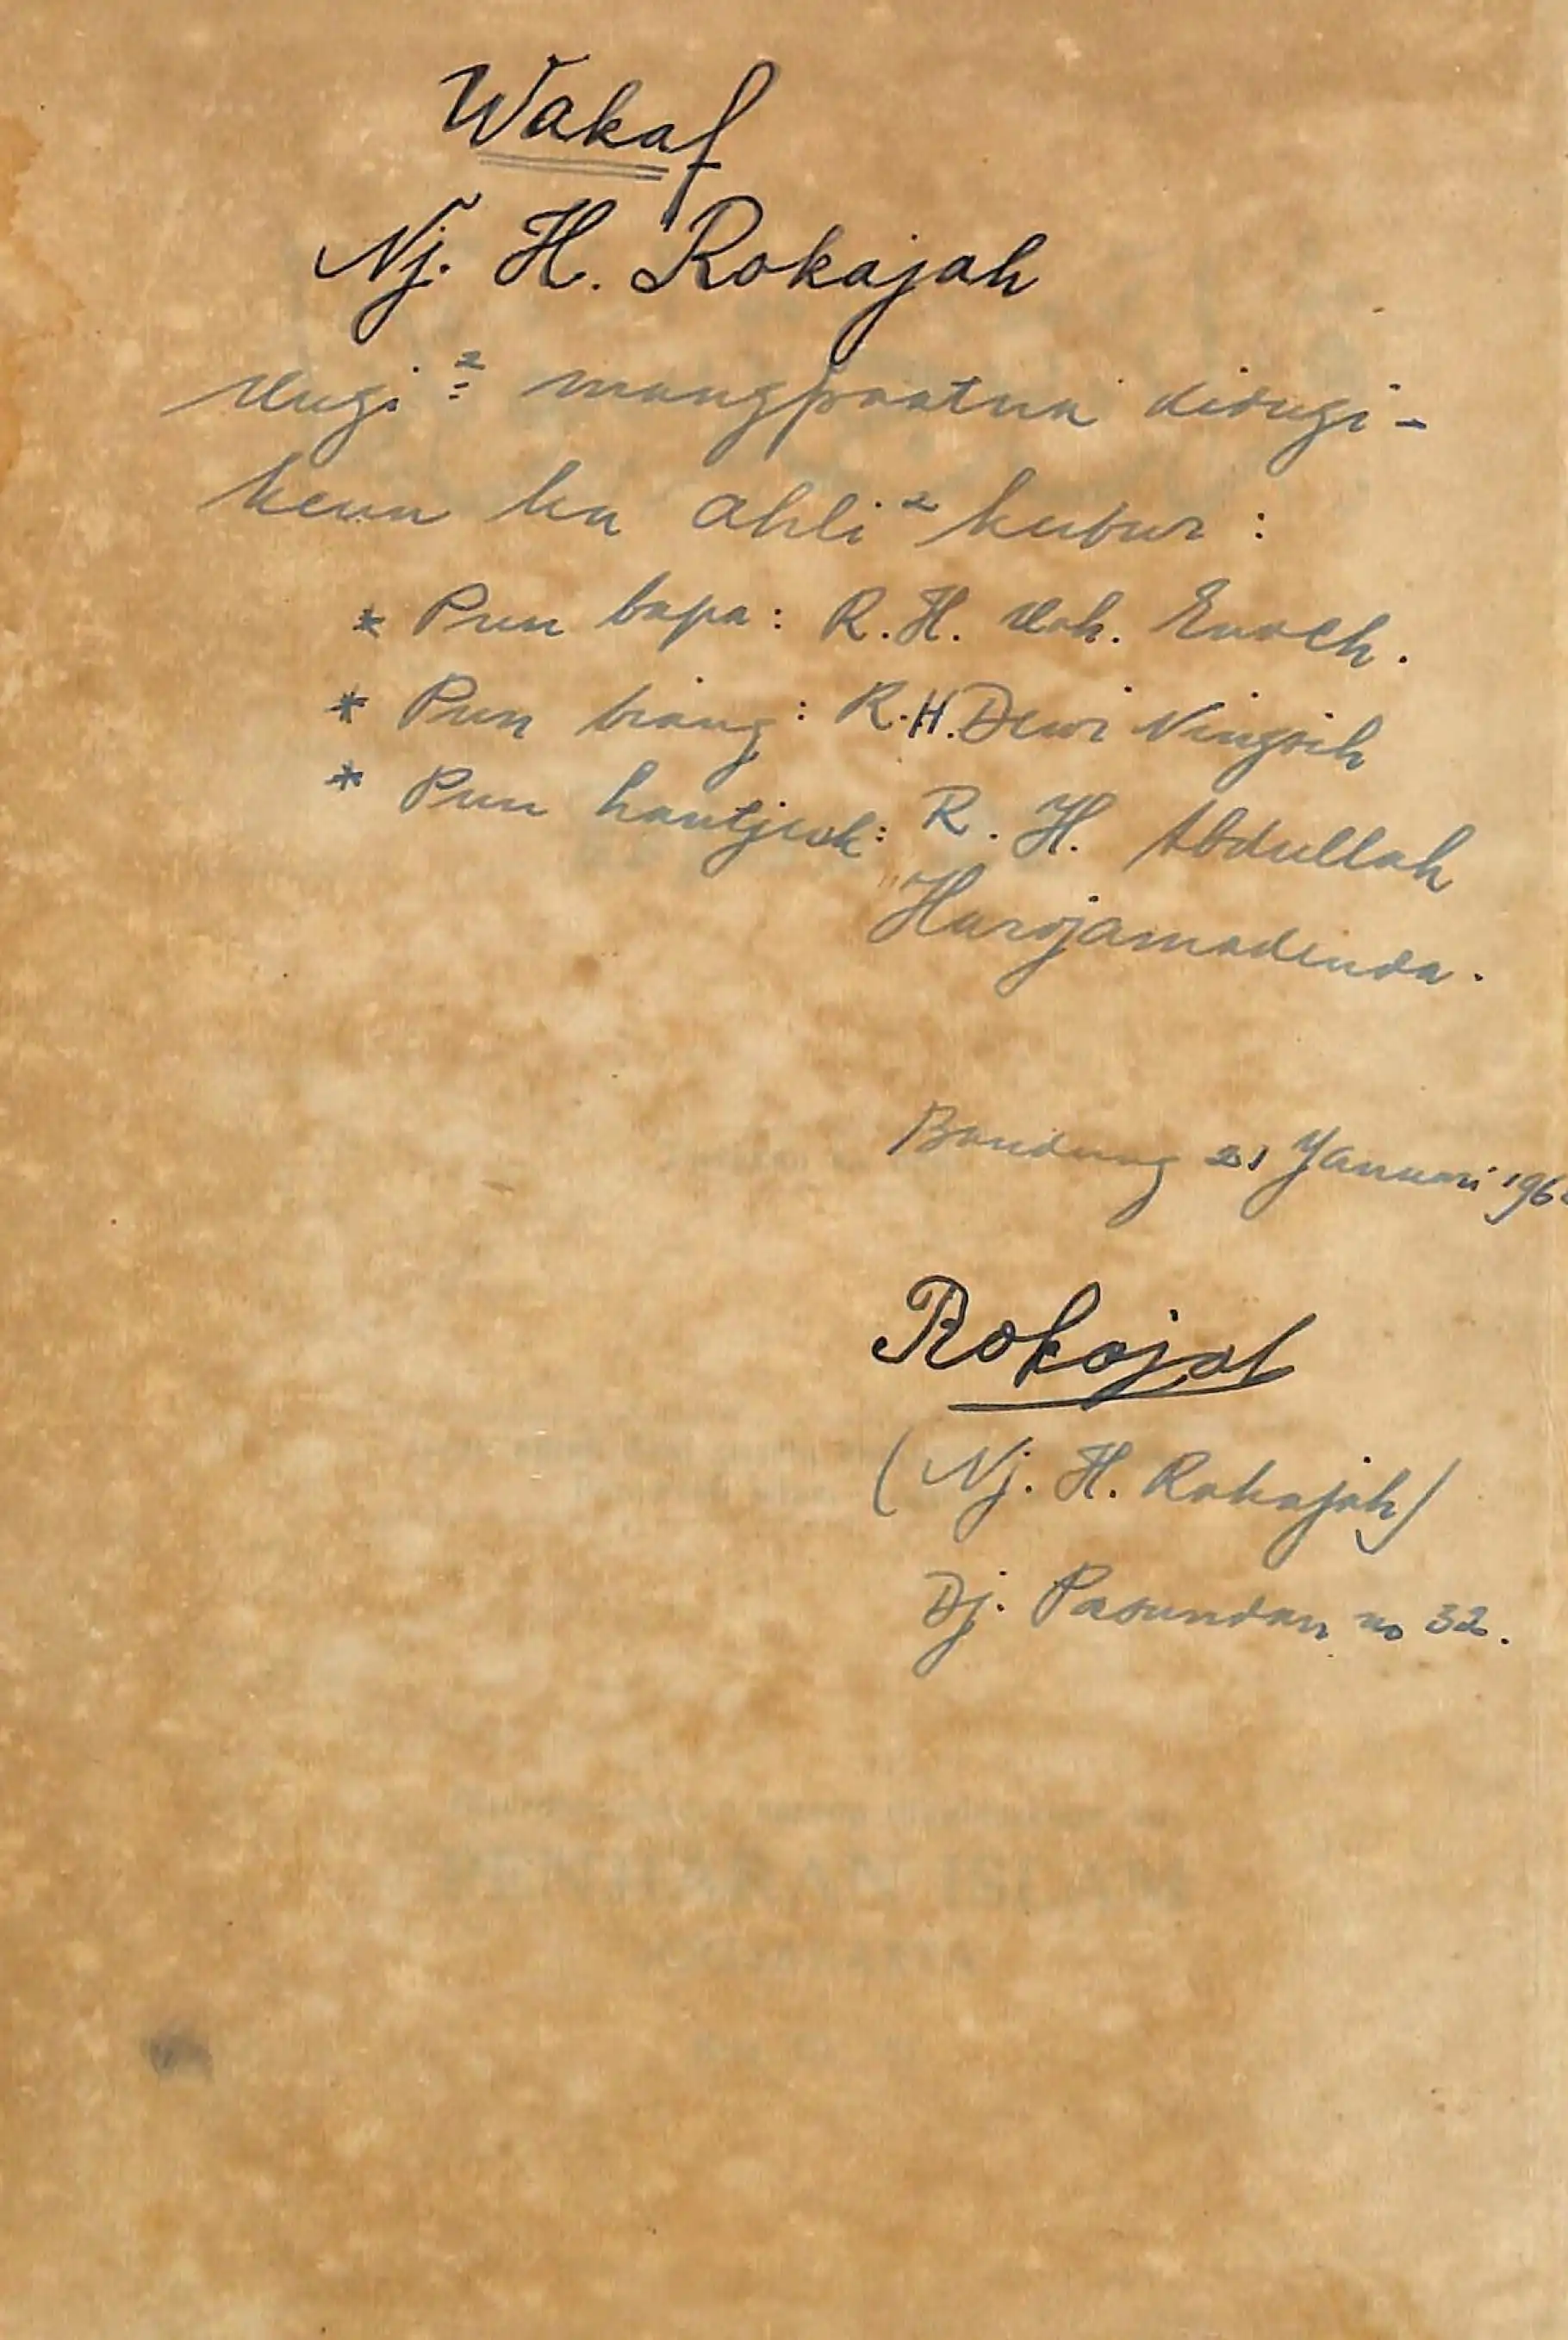 Wakaf
Nj. H. Rokajah
Mugi² mangpaatna disugi-
keun ka ahli² kubur :
* Pun bapa : R. H. Moh. Enoch.
* Pun biang : R.H. Dewi Ningsih
* Pun lantjeuk : R. H. Abdullah
Surjamadinda.
Bandung 21 Januari 196
Rokajah
( Nj. H. Rokajah )
Dj. Pasundan no 32.
PENJIARAN ISLAM